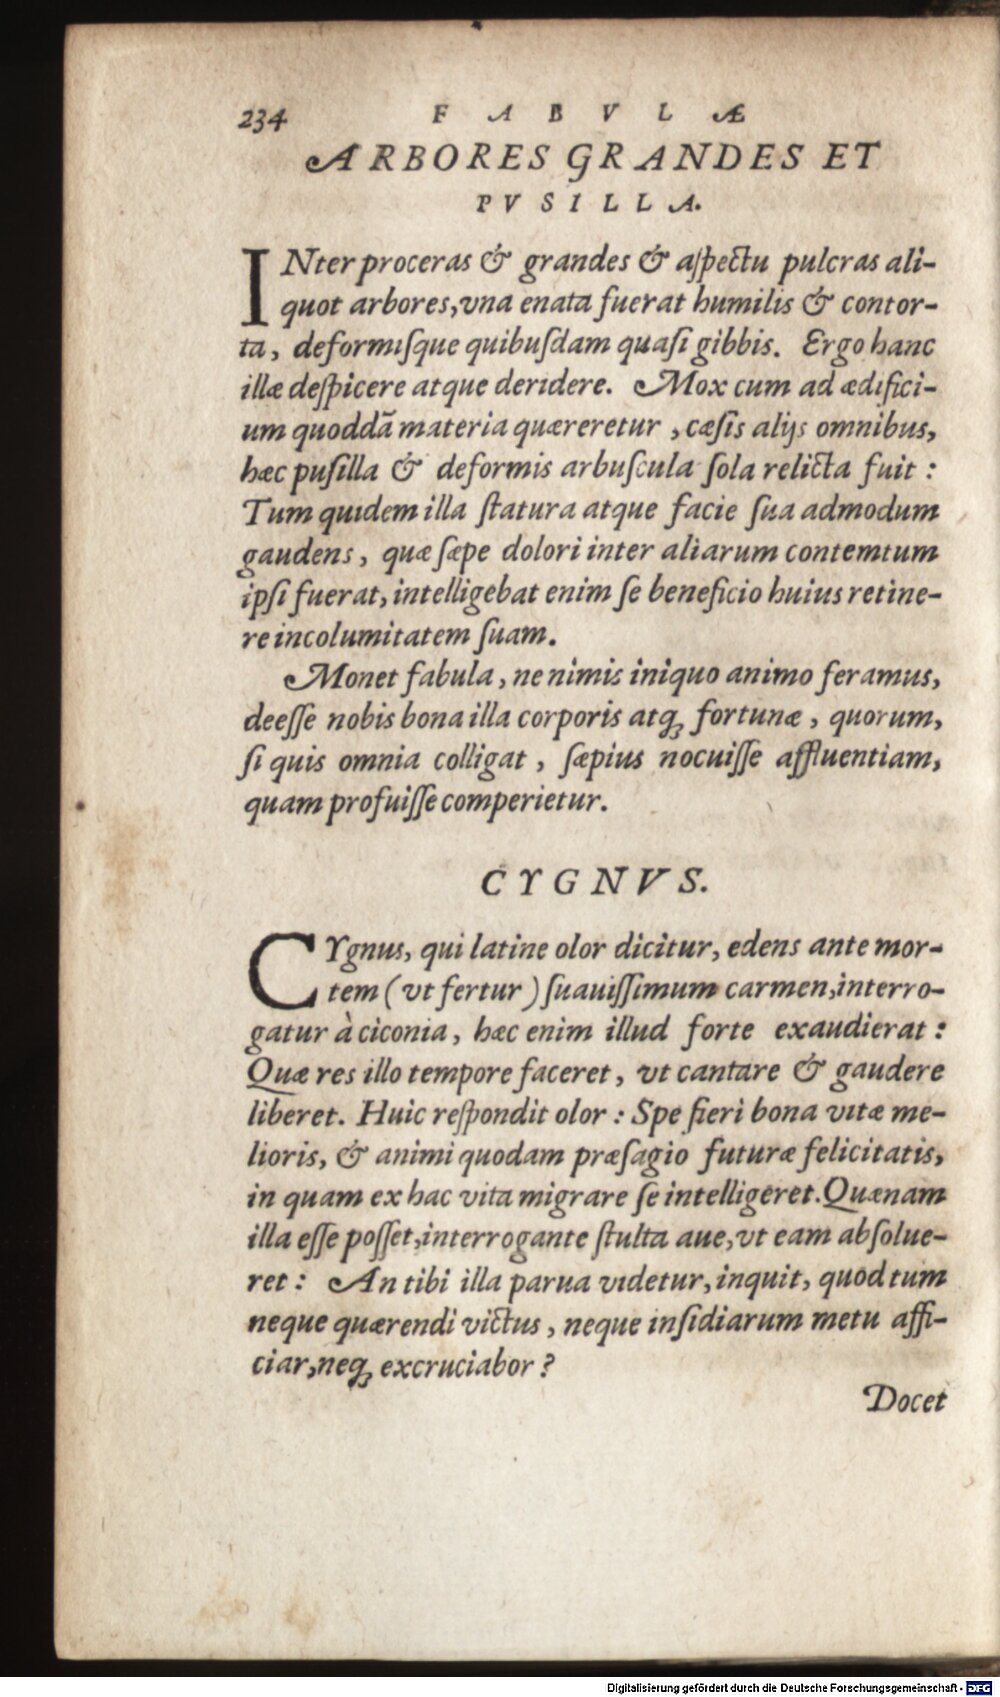 234 FABVLÆ
ARBORES GRANDES ET
PVSILLA.
INter proceras & grandes & aſpectu pulcras ali-
quot arbores, vna enata fuerat humilis & contor-
ta, deformiſque quibuſdam quaſi gibbis. Ergo hanc
illæ deſpicere atque deridere. Mox cum ad ædifici-
um quoddã materia quæreretur, cæſis alijs omnibus,
hæc puſilla & deformis arbuſcula ſola relicta fuit:
Tum quidem illa ſtatura atque facie ſua admodum
gaudens, quæ ſæpe dolori inter aliarum contemtum
ipſi fuerat, intelligebat enim ſe beneficio huius retine-
re incolumitatem ſuam.
Monet fabula, ne nimis iniquo animo feramus,
deeſſe nobis bona illa corporis atq; fortunæ, quorum,
ſi quis omnia colligat, ſæpius nocuiſſe affluentiam,
quam profuiſſe comperietur.
CYGNVS.
CYgnus, qui latine olor dicitur, edens ante mor-
tem (vt fertur) ſuauiſſimum carmen, interro-
gatur à ciconia, hæc enim illud forte exaudierat:
Quæ res illo tempore faceret, vt cantare & gaudere
liberet. Huic reſpondit olor: Spe fieri bona vitæ me-
lioris, & animi quodam præſagio futuræ felicitatis,
in quam ex hac vita migrare ſe intelligeret. Quænam
illa eſſe poſſet, interrogante ſtulta aue, vt eam abſolue-
ret: An tibi illa parua videtur, inquit, quod tum
neque quærendi victus, neque inſidiarum metu affi-
ciar, neq; excruciabor?
Docet
Digitalisierung gefördert durch die Deutsche Forschungsgemeinschaft - DFG